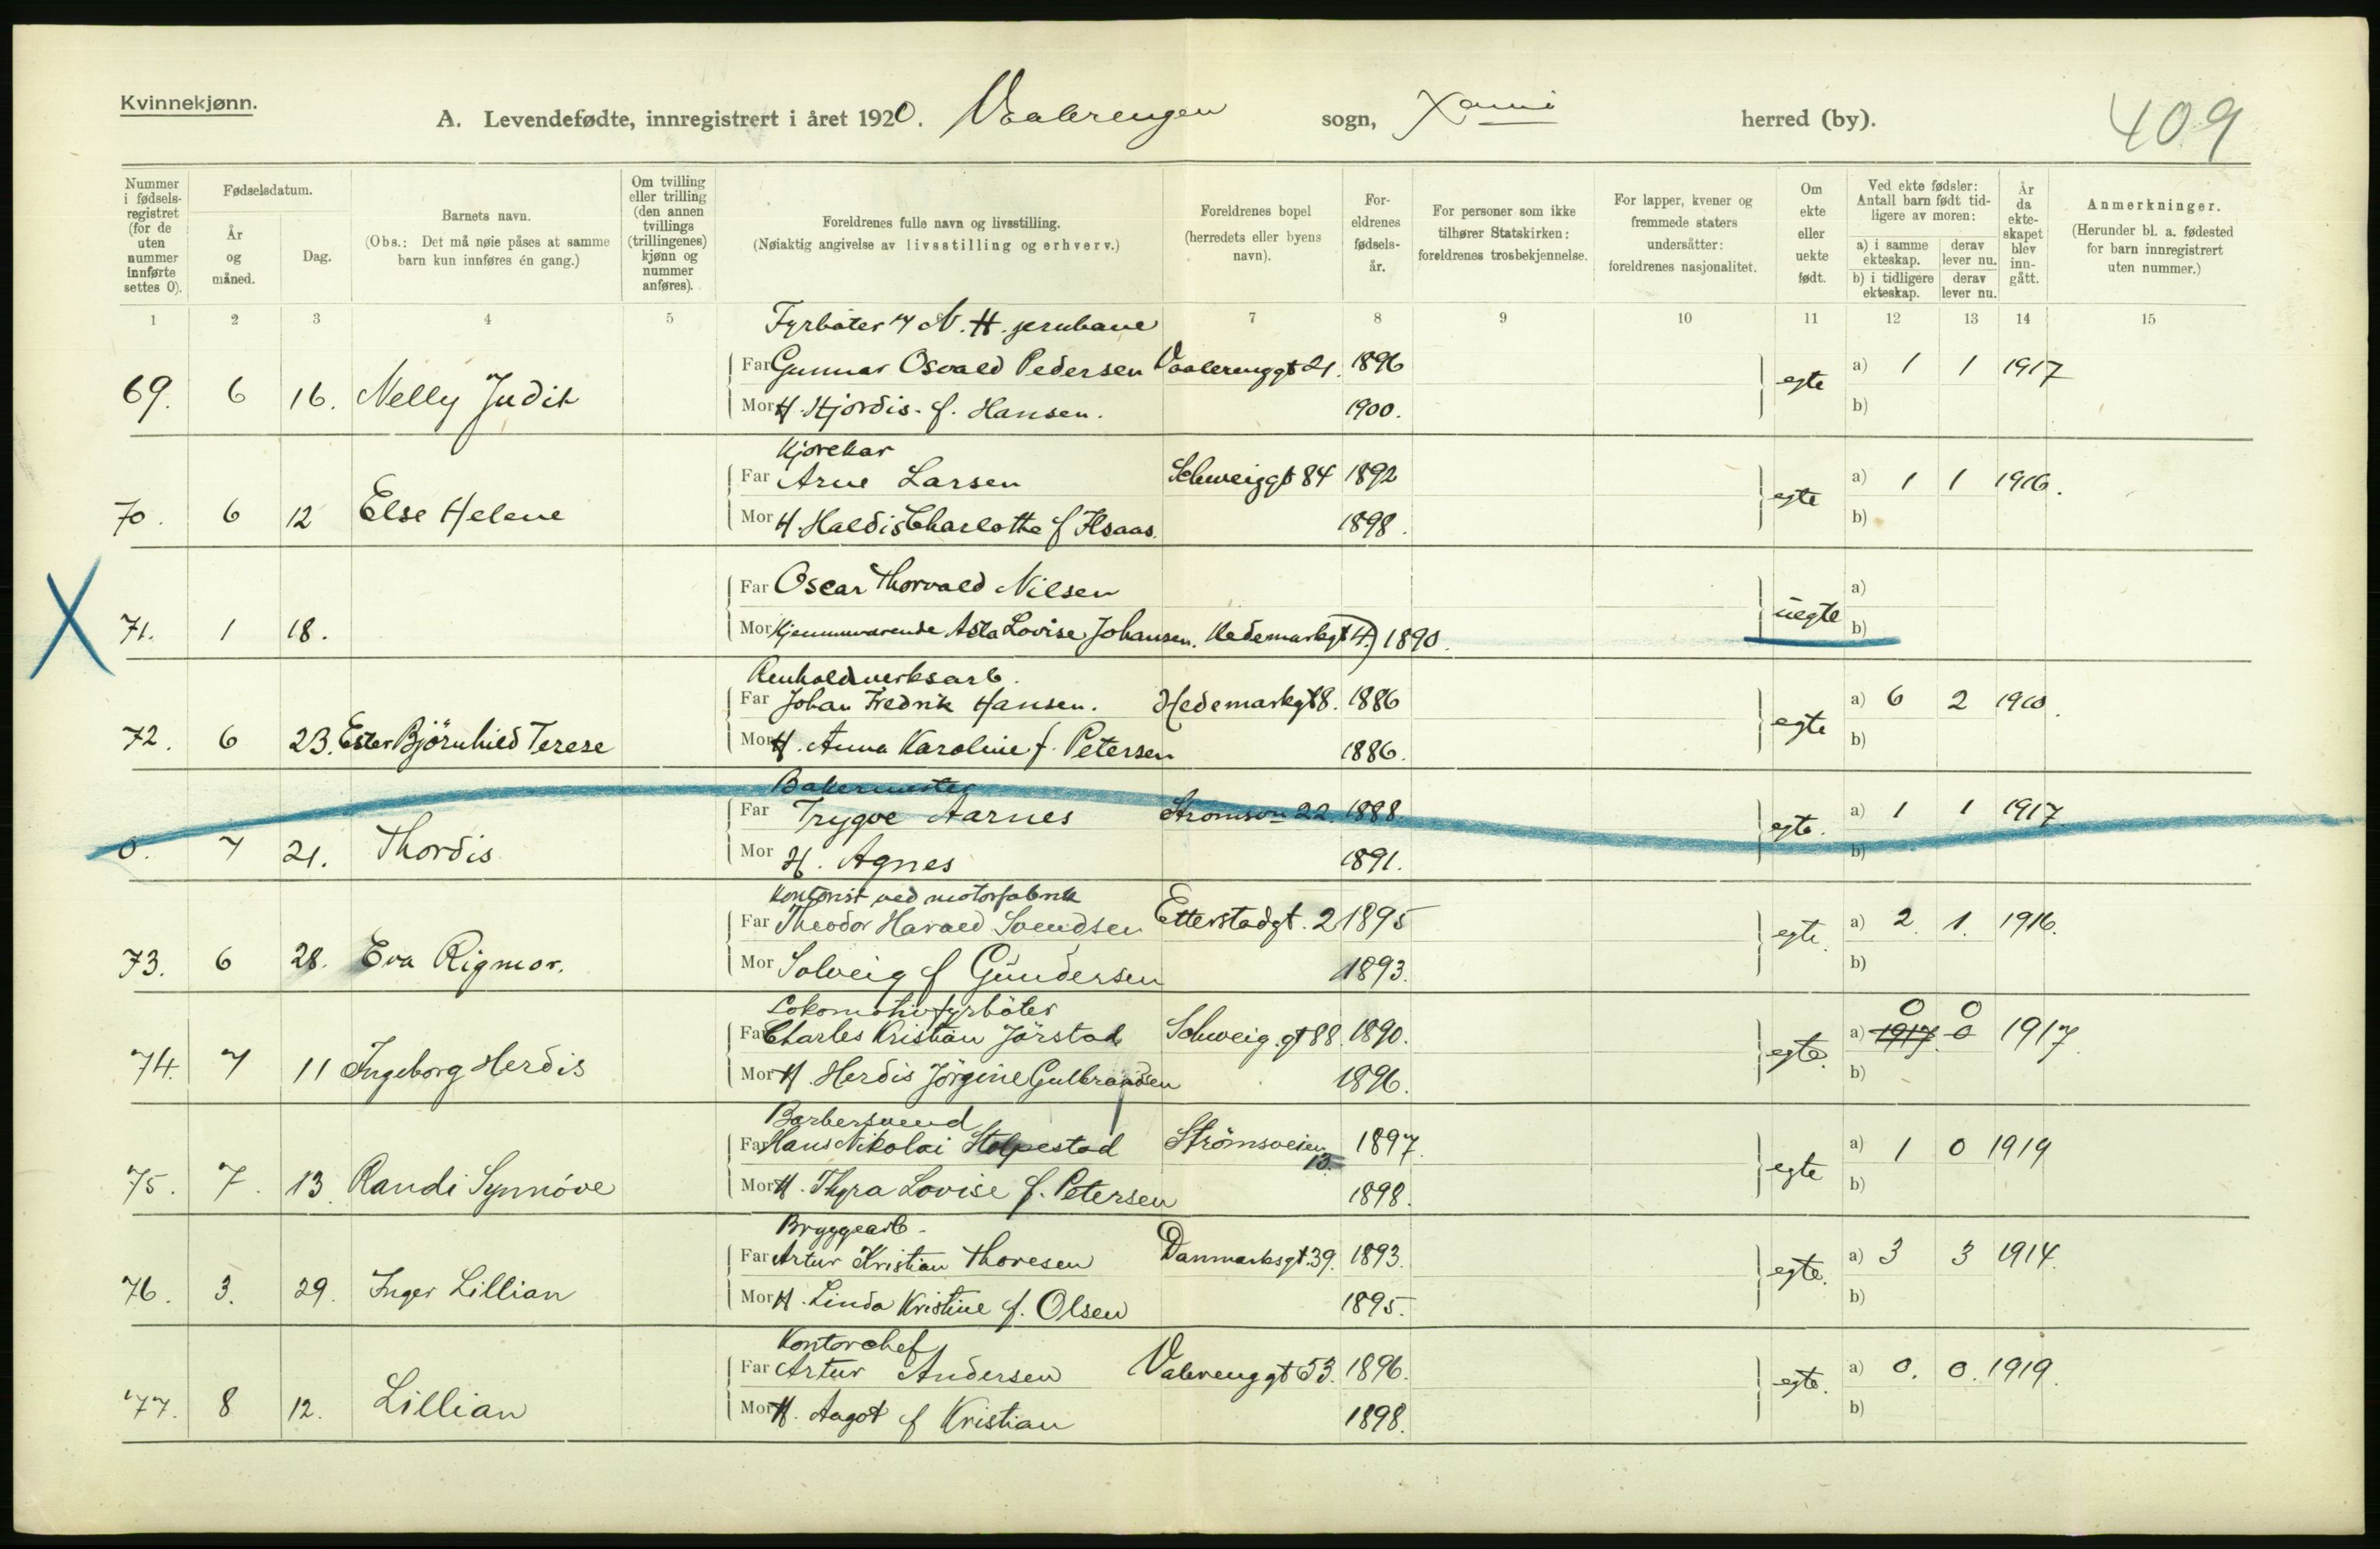 Kvinnekjønn.
A. Levendefødte, innregistrert i året 1920. Vaalerengen sogn, Xania herred (by).
409
Nummer i fødsels-registret (for de uten nummer innførte settes 0).
Fødselsdatum.
År og måned.
Dag.
Barnets navn.
(Obs.: Det må nøie påses at samme barn kun innføres én gang.)
Om tvilling eller trilling (den annen tvillings (trillingenes) kjønn og nummer anføres).
Foreldrenes fulle navn og livsstilling.
(Nøiaktig angivelse av livsstilling og erhverv.)
Foreldrenes bopel (herredets eller byens navn).
For-eldrenes fødsels-år.
For personer som ikke tilhører Statskirken: foreldrenes trosbekjennelse.
For lapper, kvener og fremmede staters undersåtter: foreldrenes nasjonalitet.
Om ekte eller uekte født.
Ved ekte fødsler: Antall barn født tid-ligere av moren:
a) i samme ekteskap.
derav lever nu.
b) i tidligere ekteskap.
derav lever nu.
År da ekte-skapet blev inn-gått.
Anmerkninger.
(Herunder bl. a. fødested for barn innregistrert uten nummer.)
1 2 3 4 5 7 8 9 10 11 12 13 14 15
Fyrbøter v N. H. jernbane
Far Gunnar Osvald Pedersen Vaalerenggt 21. 1896
69. 6 16. Nelly Judit egte a) 1 1 1917
Mor H. Hjørdis. f. Hansen. 1900. b)
Kjørekar
Far Arne Larsen Schweiggt 84 1892
70. 6 12 Else Helene egte a) 1 1 1916.
Mor H. Haldis Charlotte f Ilsaas. 1898. b)
Far Oscar Thorvald Nilsen
71. 1 18. uegte a)
Mor Hjemmeværende Asta Lovise Johansen. Hedemarkgt 4. 1890. b)
Renholdverksarb.
Far Johan Fredrik Hansen. Hedemarkgt 8. 1886
72. 6 23. Ester Bjørnhild Terese egte a) 6 2 1910.
Mor H. Anna Karoline f. Petersen 1886. b)
Bakermester
Far Trygve Aarnes Strømsv 22. 1888.
0. 7 21. Thordis egte. a) 1 1 1917
Mor H. Agnes 1891. b)
Kontorist ved motorfabrik
Far Theodor Harald Svendsen Etterstadgt. 2 1895
73. 6 28. Eva Rigmor. egte. a) 2. 1. 1916.
Mor Solveig f Gundersen 1893. b)
Lokomotivfyrbøter
Far Charles Kristian Jørstad Schweig.gt 88. 1890.
0 0
74. 7 11 Ingeborg Herdis egte. a) 1917 0 1917.
Mor H. Herdis Jørgine Gulbrandsen 1896. b)
Barbersvend
Far Hans Nikolai Stolpestad Strømsveien 13. 1897.
75. 7. 13 Randi Synnøve egte a) 1 0 1919
Mor H. Thyra Lovise f. Petersen 1898. b)
Bryggearb.
Far Artur Kristian Thoresen Danmarksgt. 39. 1893.
76. 3. 29. Inger Lillian egte. a) 3 3 1914.
Mor H. Linda Kristine f. Olsen 1895. b)
Kontorchef
Far Artur Andersen Valerenggt 53. 1896.
77. 8 12. Lillian egte. a) 0. 0. 1919.
Mor H. Aagot f Kristian 1898. b)